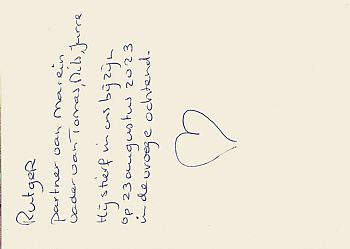 Rutger
partner van Marein
vader van Tomas, Nils, Jurre
Hij stierf in ons bijzijn
op 23 augustus 2023
in de vroege ochtend.